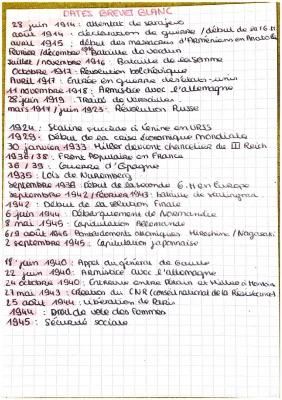 DATES BREVET BLANC
28 juin 1914 : attentat de sarajevo
août 1914 : déclaration de guerre / début de la 1G.M
avril 1915 : début des massacres d'Arméniens en Anatolie
Février/décembre 1916 Bataille de Verdun
Juillet/novembre 1916 : Bataille de la Somme
Octobre 1917 : Révolution bolchévique
Avril 1917 : Entrée en guerre des états-unis
11 novembre 1918 : Armistice avec l'allemagne
28 juin 1919 : Traité de Versailles
mars 1917 / juin 1923 : Révolution Russe
1924 : Staline succède à Lénine en URSS
1929 : Début de la crise économique mondiale
30 janvier 1933 Hitler devient chancelier du III Reich
1936/38 : Front Populaire en France
36/39 : Guerre d'Espagne
1935 : Lois de Nuremberg
Septembre 1939 : Début de la seconde G.M en Europe
Septembre 1942/février 1943 : Bataille de Stalingrad
1942 : Début de la solution Finale
6 juin 1944 : Débarquement de Normandie
8 mai 1945 : Capitulation Allemande
6/9 août 1945 Bombardements atomiques Hiroshima/Nagasaki
2 septembre 1945 : Capitulation japonaise
18 juin 1940 : Appel du général de Gaulle
22 juin 1940 : Armistice avec l'allemagne
24 octobre 1940 : Entrevue entre Pétain et Hitler à Montoire
27 mai 1943 : Création du CNR (conseil national de la Résistance)
25 août 1944 : Libération de Paris
1944 : Droit de vote des femmes
1945 : Sécurité sociale